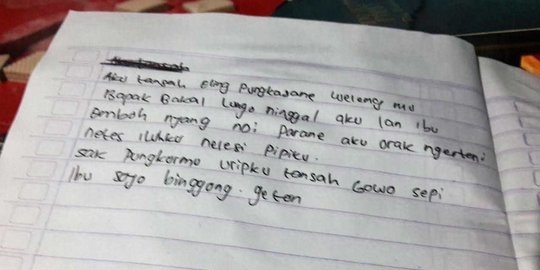 Aku tansah eling pungkasane welenge mu
Bapak Bakal lungo ninggal aku lan ibu
Embah nyang ndi parane aku orak ngerteni
netes iluhku nelesi pipiku.
sak pungkormo uripku tansah Gowo sepi
Ibu sojo binggong. geten